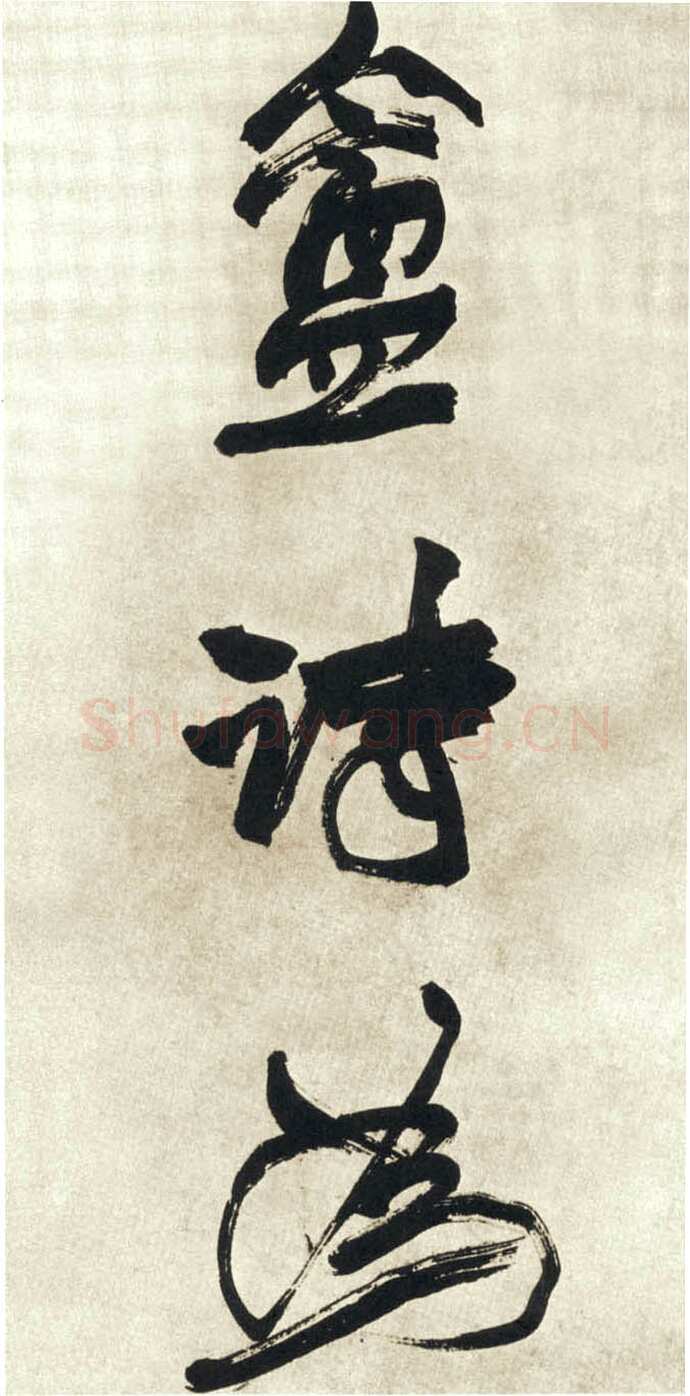 盦
詩
為
Shufawang.CN